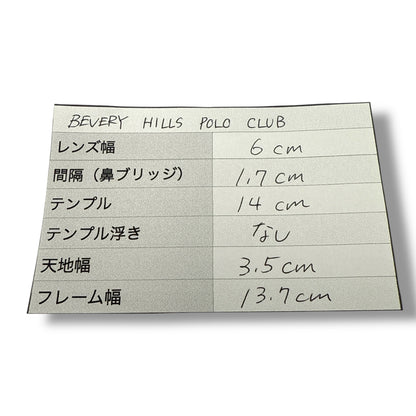 BEVERY HILLS POLO CLUB
レンズ幅 6cm
間隔（鼻ブリッジ） 1.7cm
テンプル 14cm
テンプル浮き なし
天地幅 3.5cm
フレーム幅 13.7cm